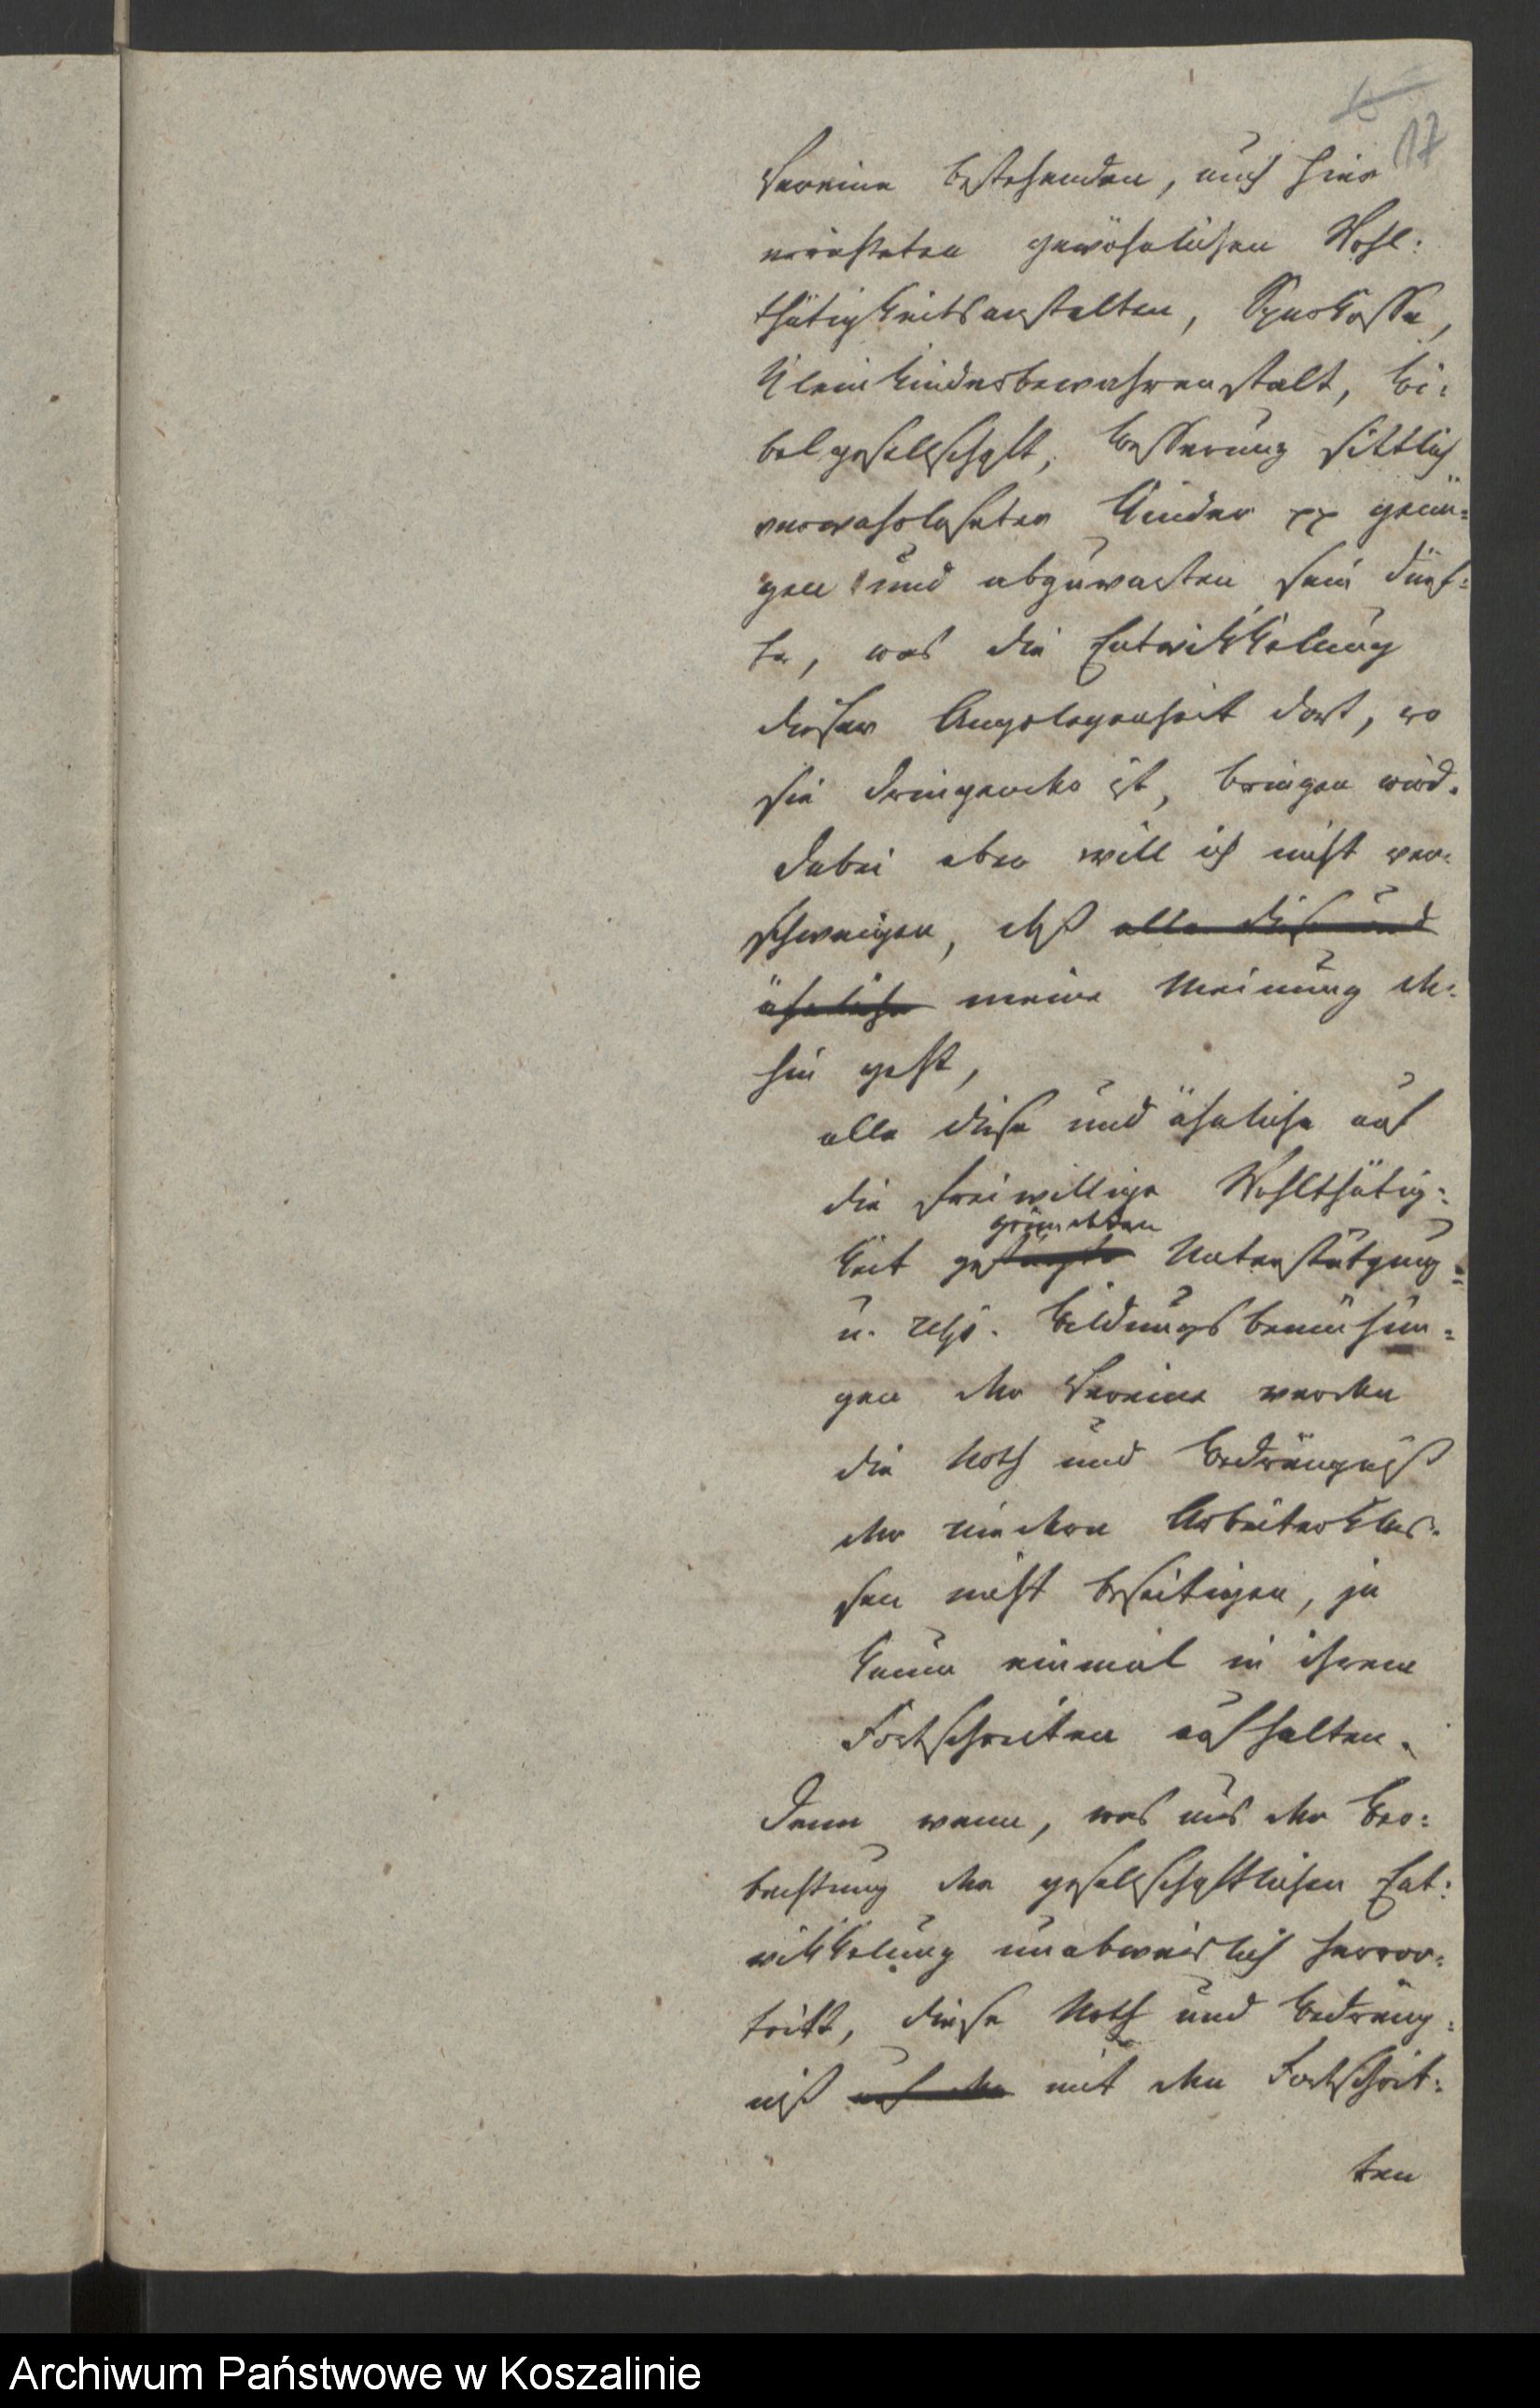 17
Vereine bestehenden, auch hier
errichteten gewöhnlichen Wohl:
thätigkeitsanstalten, Sparkasse,
Kleinkinderbewahranstalt, Bi:
belgesellschaft, Besserung sittlich
verwahrloseter Kinder pp genü:
gen und abzuwarten sein dürf:
te, was die Entwikkelung
dieser Angelegenheit dort, wo
sie dringender ist, bringen wird.
Dabei aber will ich nicht ver:
schweigen, daß alle diese und
ähnliche meine Meinung da:
hin geht,
alle diese und ähnliche auf
die freiwillige Wohlthätig:
gründeten
keit gestützte Unterstützung:
u. resp. Bildungsbemühun:
gen der Vereine werden
die Noth und Bedrängniß
der niedern Arbeiterklas:
sen nicht beseitigen, ja
kaum einmal in ihrem
Fortschreiten aufhalten.
Denn wenn, was aus der Beo:
bachtung der gesellschaftlichen Ent:
wikkelung unabweislich hervor:
tritt, diese Noth und Bedräng:
niß auf der mit den Fortschrit:
ten
Archiwum Państwowe w Koszalinie